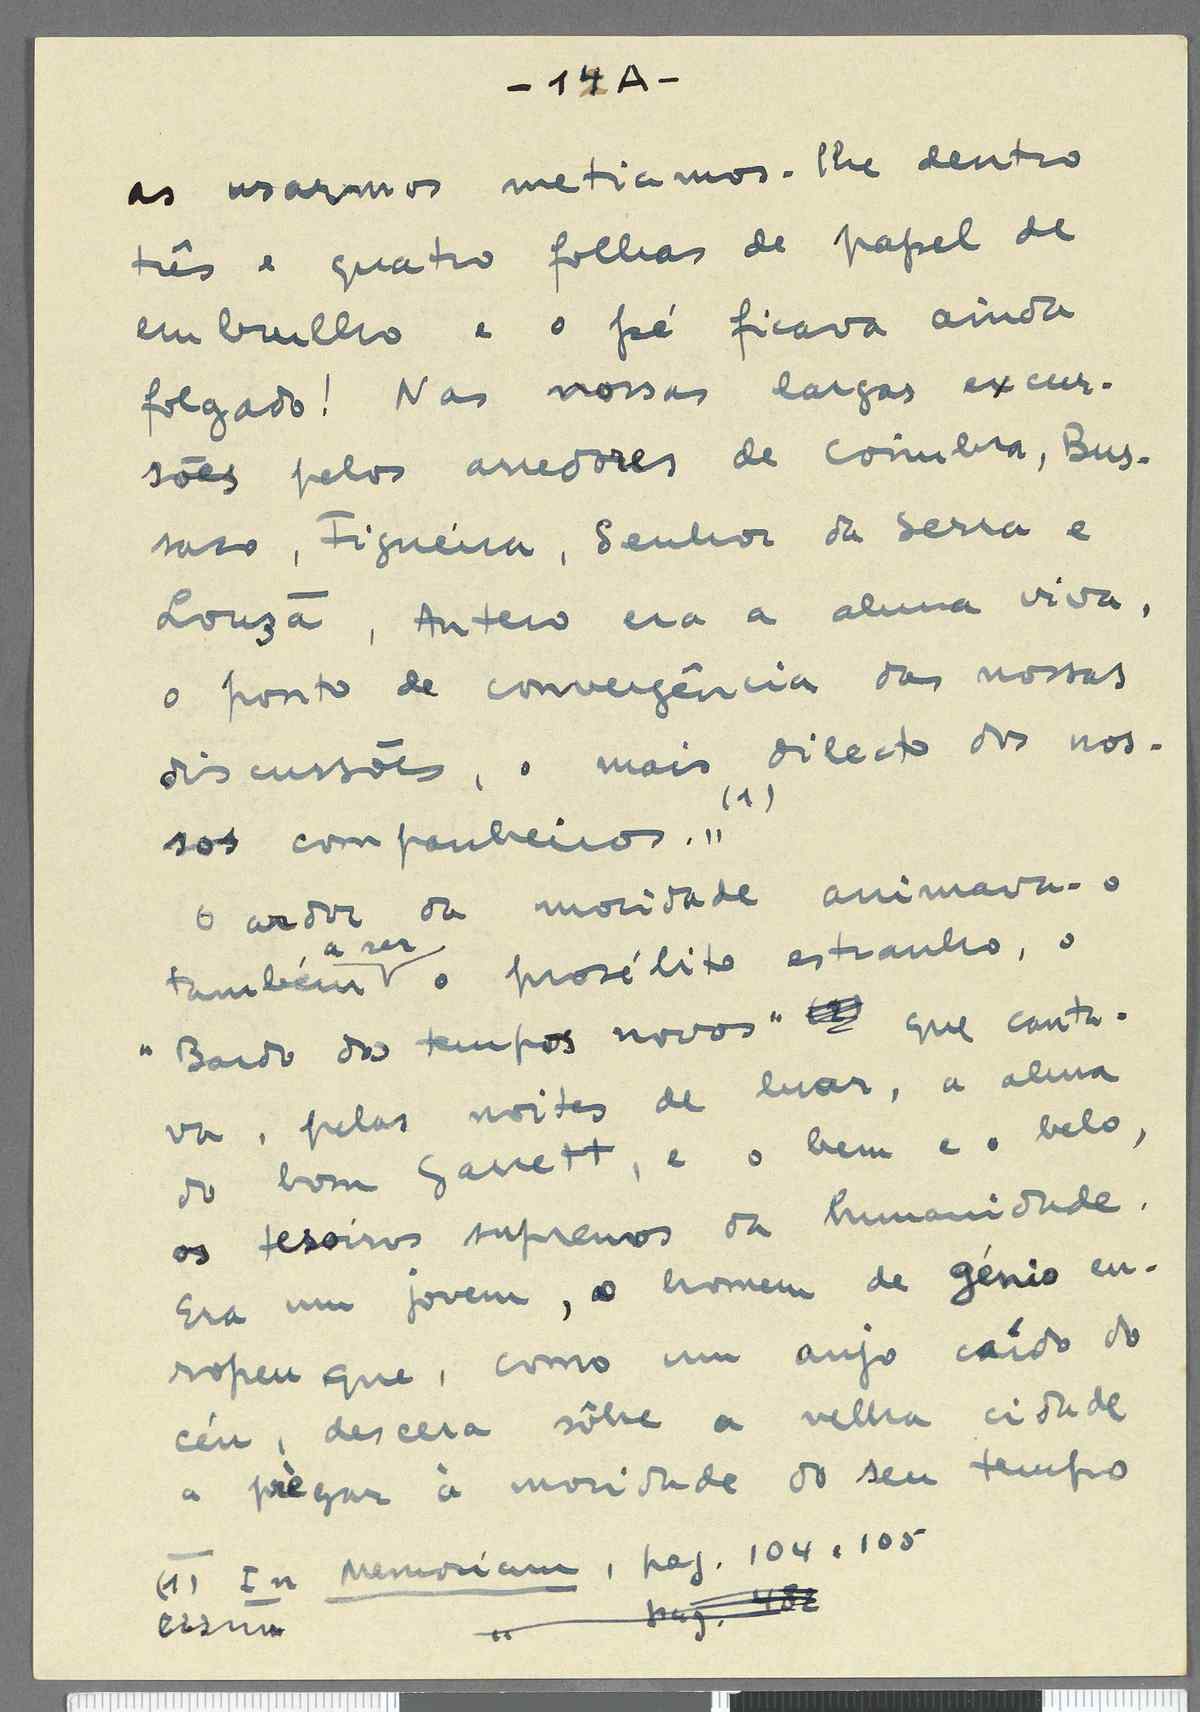 - 14 A -
as usarmos metiamos-lhe dentro
três e quatro folhas de papel de
embrulho e o pé ficava ainda
folgado! Nas nossas largas excur-
sões pelos arredores de Coimbra, Bus-
saco, Figueira, Senhor da Serra e
Louzã, Antero era a alma viva,
o ponto de convergência das nossas
discussões, o mais dilecto dos nos-
sos companheiros." (1)
O ardor da mocidade animava-o
também a ser o prosélito estranho, o
"Bardo dos tempos novos" que canta-
va, pelas noites de luar, a alma
do bom Garrett, e o bem e o belo,
os tesoiros supremos da humanidade.
Era um jovem, o homem de génio eu-
ropeu que, como um anjo caído do
céu, descera sôbre a velha cidade
a prègar à mocidade do seu tempo
(1) In Memoriam, pag. 104 e 105
" pag. 482